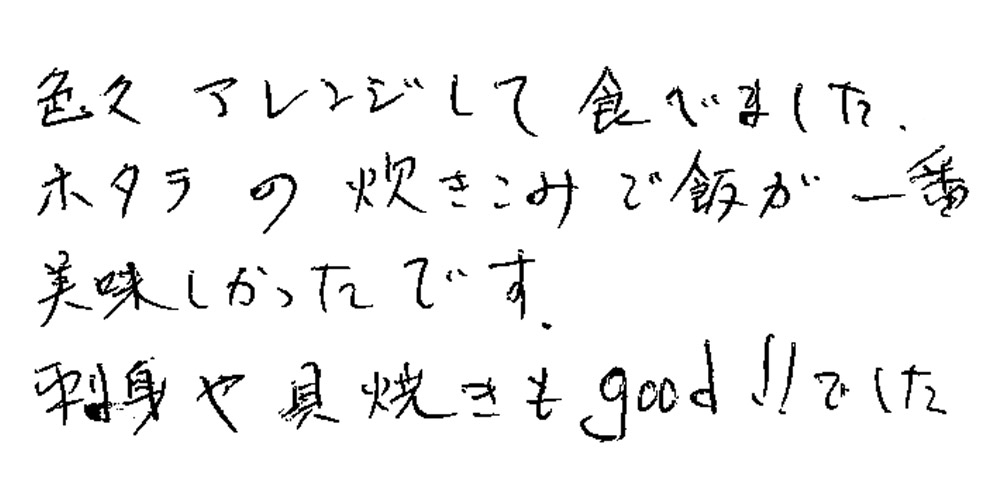 色々アレンジして食べました.
ホタテの炊きこみご飯が一番
美味しかったです.
刺身や貝焼きもgood!!でした